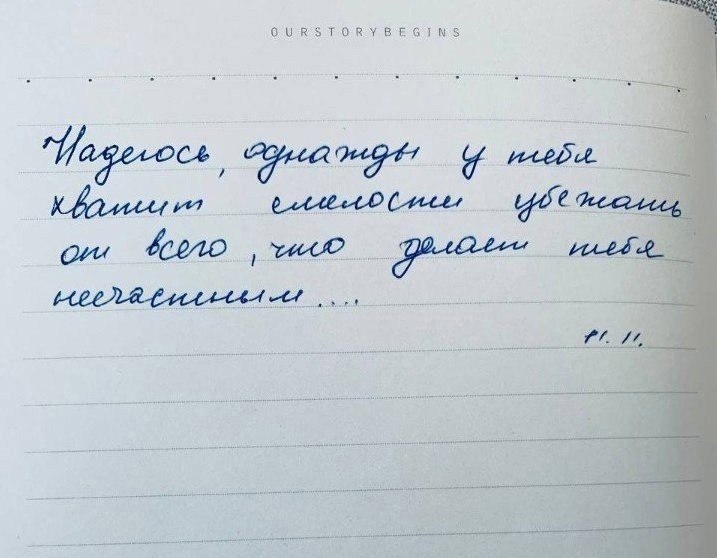 OURSTORYBEGINS
Надеюсь, однажды у тебя
хватит смелости убежать
от всего, что делает тебя
несчастным....